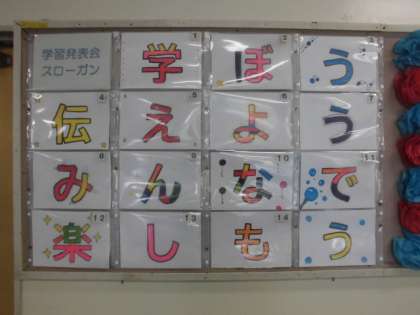 学習発表会
スローガン
1 学 2 ぼ 3 う
4 伝 5 え 6 よ 7 う
8 み 9 ん 10 な 11 で
12 楽 13 し 14 も う